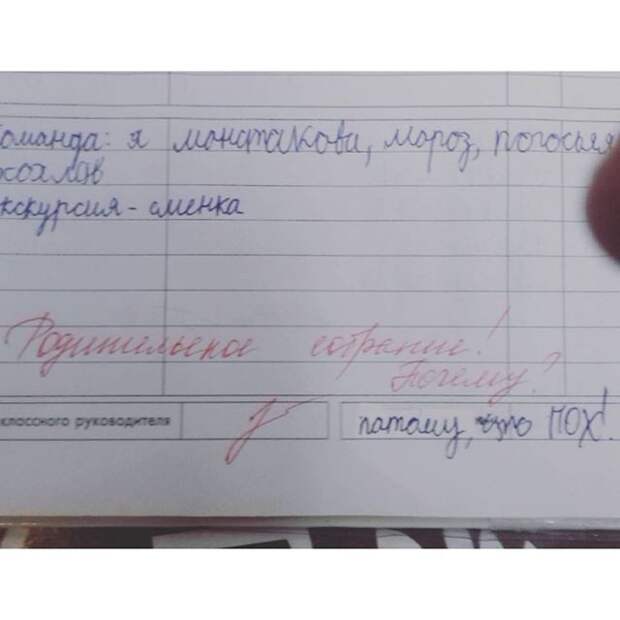 оманда: я монатакова, мороз, погосья
хохлов
кскурсия - сменка
Родительское собрание!
Почему?
классного руководителя
патаму, что ПОХ!